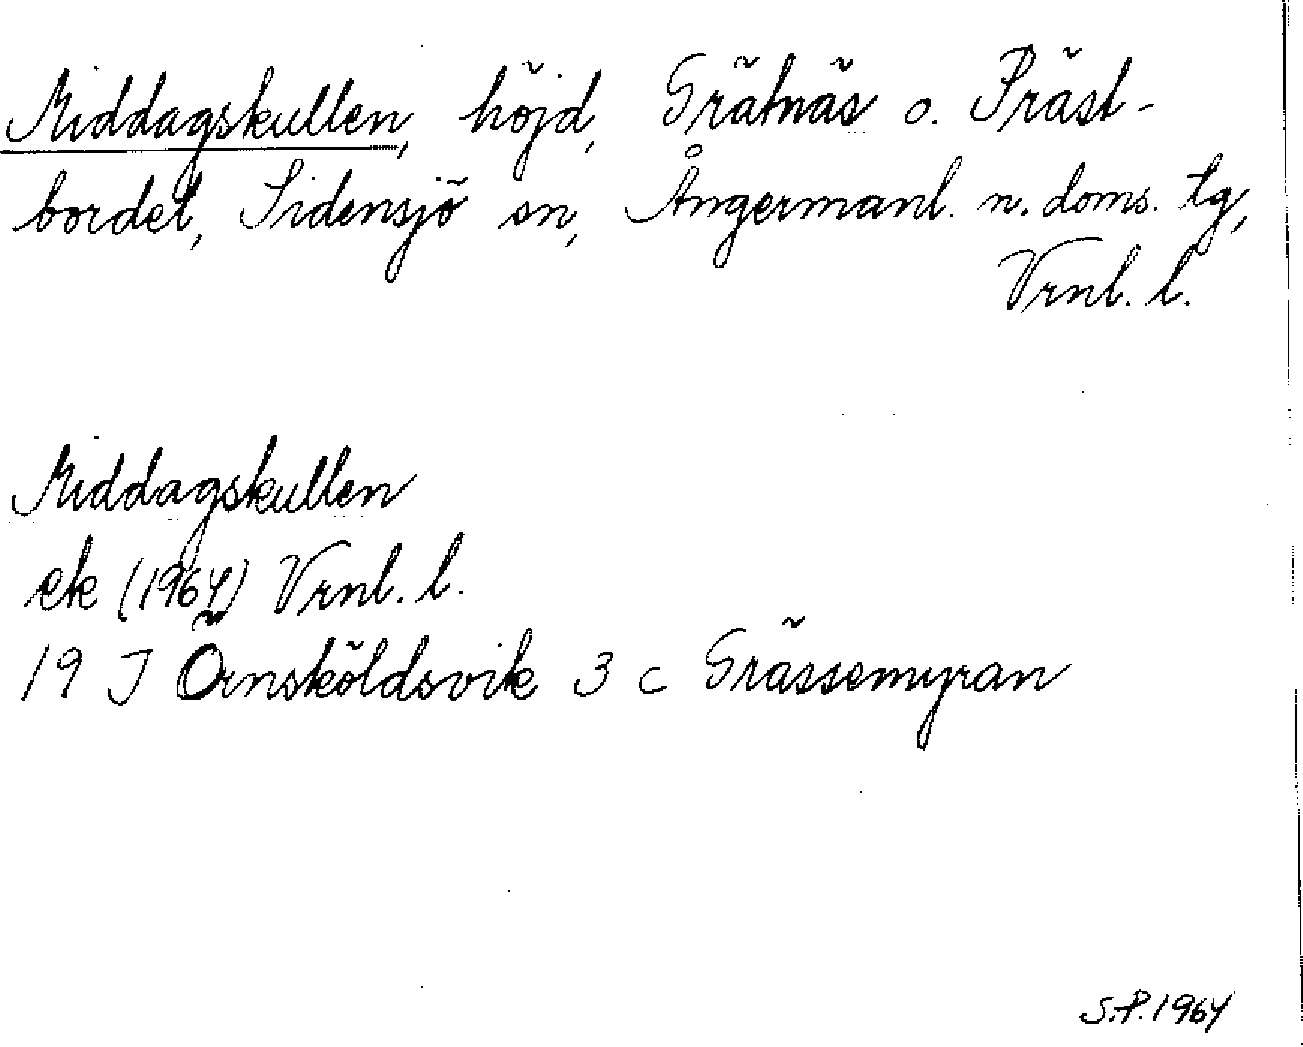 Middagskullen, höjd, Grätnäs o. Präst-
bordet, Sidensjö sn, Ångermanl. n. doms. tg,
Vrnl. l.
Middagskullen
ek (1964) Vrnl. l.
19 J Örnsköldsvik 3 c Grässemyran
S.P. 1964